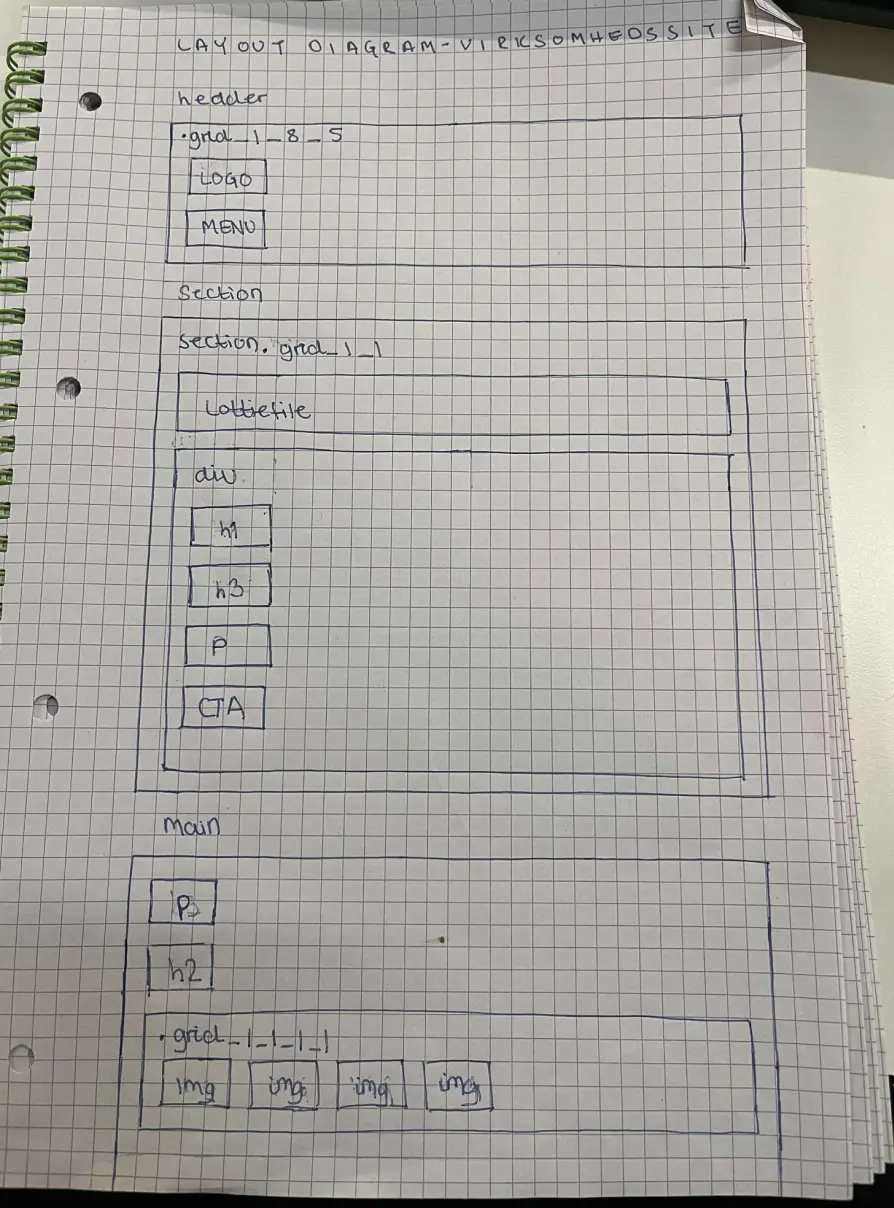 LAYOUT DIAGRAM-VIRKSOMHEDSSITE
header
.grid_1-8-5
LOGO
MENU
Section
section. grid_1_1
Lottiefile
div.
h1
h3
P
CTA
main
h2
.grid_1_1_1_1
img img img img